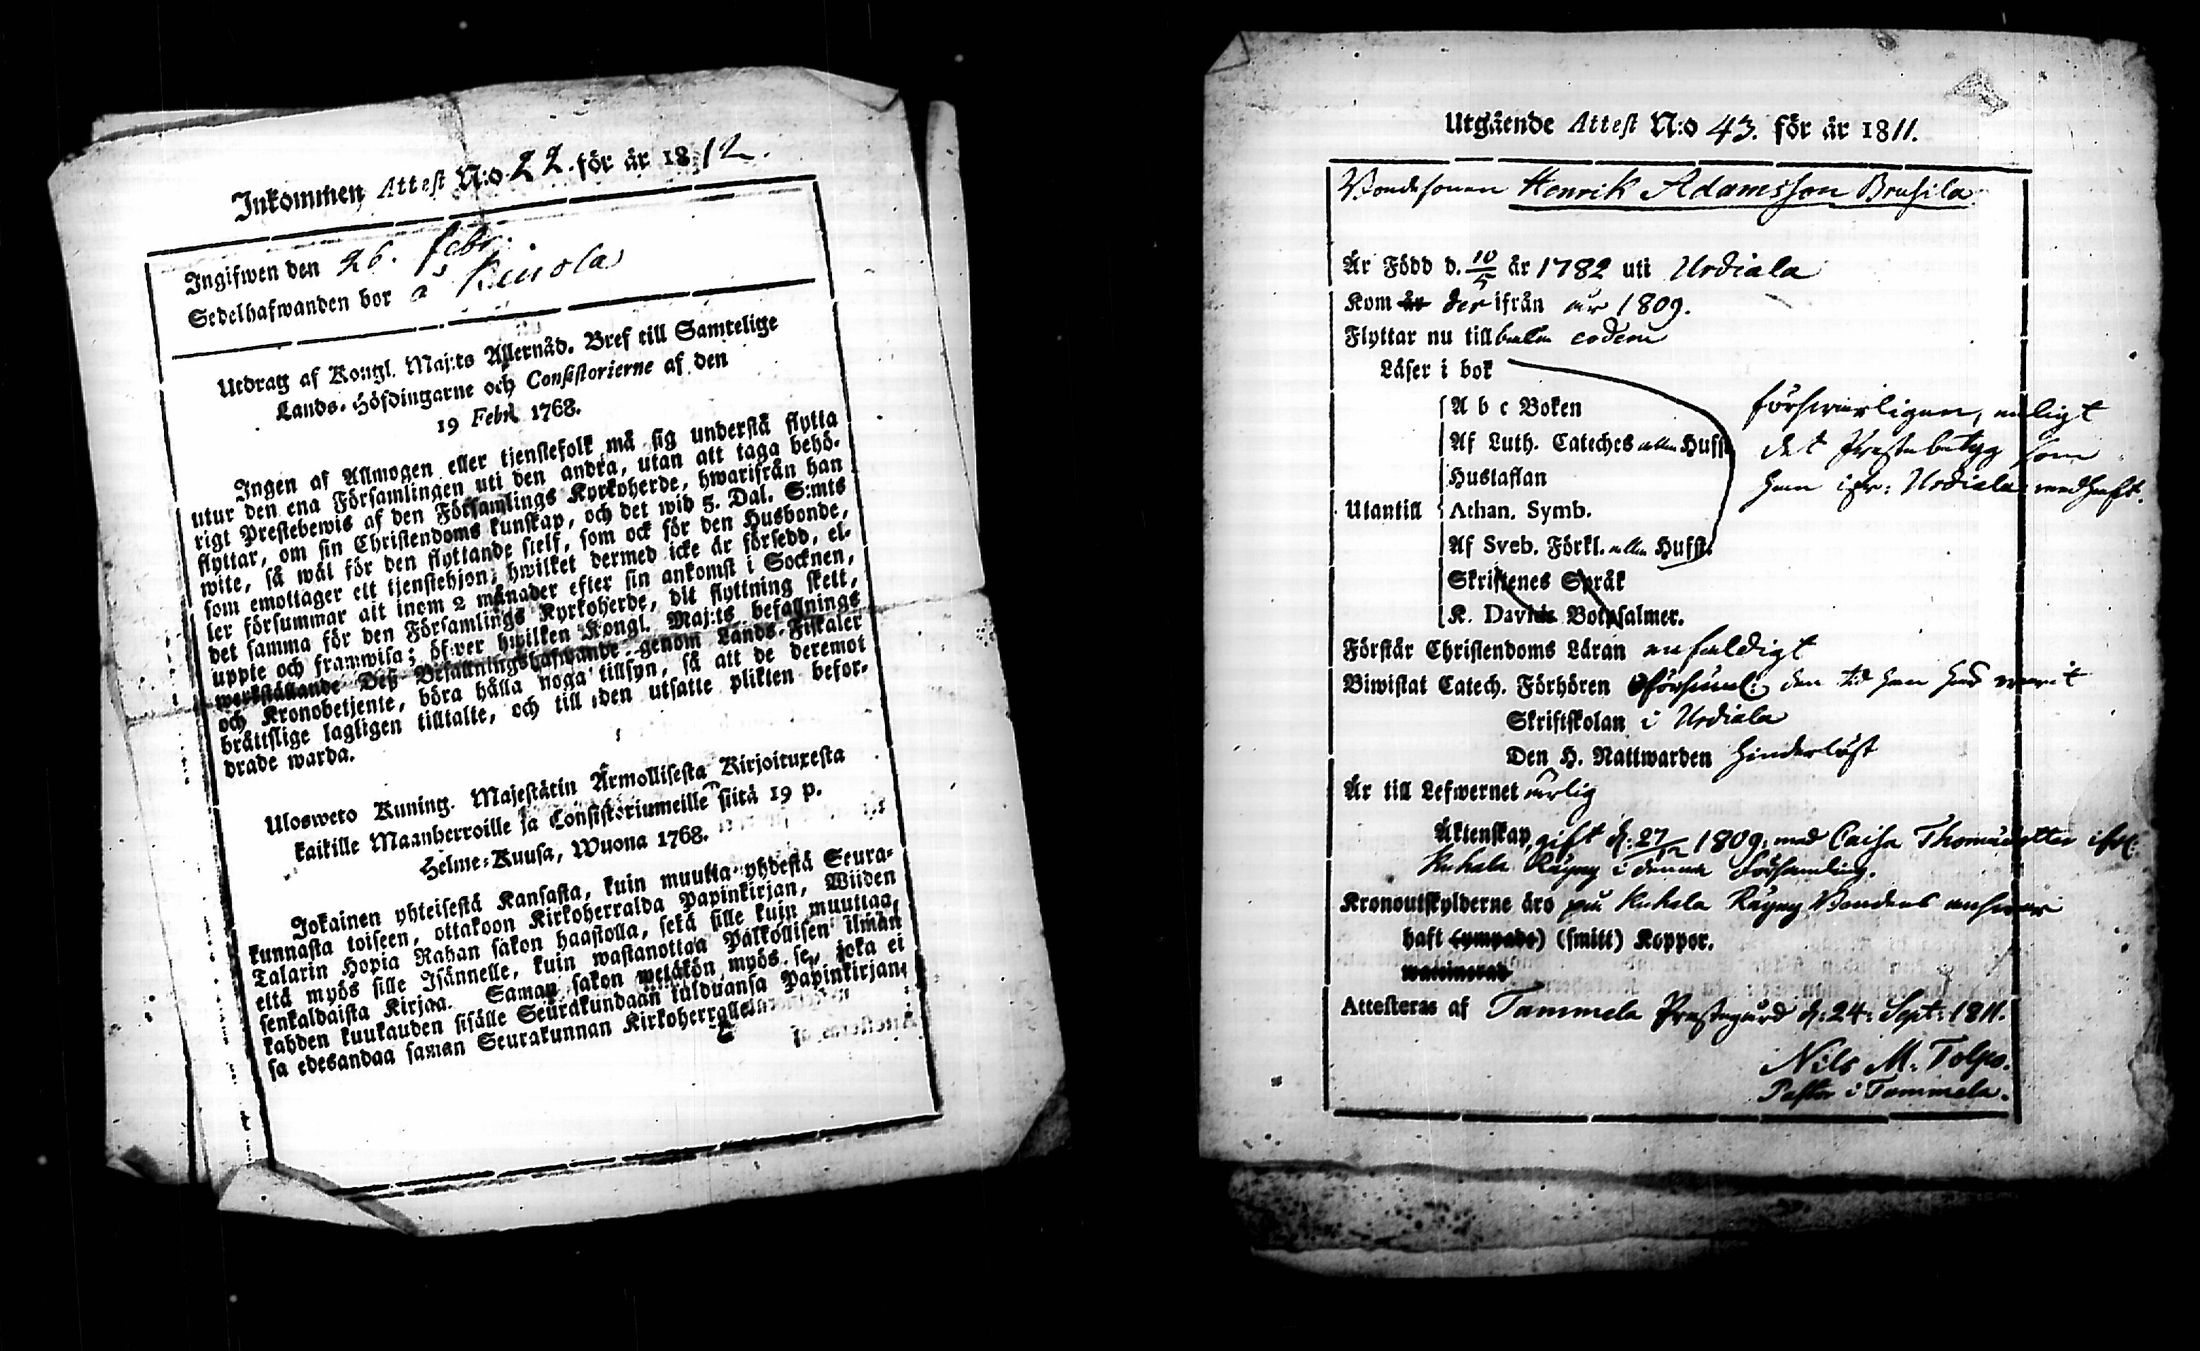 Inkommen Attest N:o 22. för år 1812.
Ingifwen den 26. febr.
Sedelhafwanden bor å
Utdrag af Kongl. Maj:ts Allernåd. Bref till Samtelige
Lands-Höfdingarne och Consistorierne af den
19 Febr. 1768.
Ingen af Allmogen eller tjenstefolk må sig understå flytta
utur den ena Församlingen uti den andra, utan att taga behö-
rigt Prestebewis af den Församlings Kyrkoherde, hwarifrån han
flyttar, om sin Christendoms kunskap, och det wid 5. Dal. S:mts
wite, så wäl för den flyttande sielf, som ock för den Husbonde,
som emottager ett tjenstehjon; hwilket dermed icke är försedd, el-
ler försummar att inom 2 månader efter sin ankomst i Socknen,
det samma för den Församlings Kyrkoherde, dit flyttning skett,
uppte och framwisa; öfwer hwilken Kongl. Maj:ts befallnings
werkställande Deß Befallningshafwande genom Lands-Fiskaler
och Kronobetjente, böra hålla noga tillsyn, så att de deremot
bråttslige lagligen tilltalte, och till den utsatte plikten befor-
drade warda.
Ulosweto Kuning. Majestätin Armollisesta Kirjoituxesta
kaikille Maanherroille ja Consistoriumeille siitä 19 p.
Helme-Kuusa, Wuona 1768.
Jokainen yhteisestä Kansasta, kuin muutta yhdestä Seura-
kunnasta toiseen, ottakoon Kirkoherralda Papinkirjan, Wiiden
Talarin Hopia Rahan sakon haastolla, sekä sille kuin muuttaa,
että myös sille Isännelle, kuin wastanottaa Palkollisen ilman
senkaldaista Kirjaa. Saman sakon wetäkön myös se, joka ei
kahden kuukauden sisälle Seurakundaan tulduansa Papinkirjan-
sa edesandaa saman Seurakunnan Kirkoherralle.
Utgående Attest N:o 43. för år 1811.
Bondesonen Henrik Adamsson Brusila
Är Född d. 10/5 år 1782 uti Urdiala
Kom år derifrån år 1809.
Flyttar nu till eodem
Läser i bok
A b c Boken
Af Luth. Cateches Husst.
Hustaflan
Utantill Athan. Symb.
Af Sveb. Förkl. Husst.
Skriftenes Språk
K. Davids Botpsalmer.
förswarligen, enligt
det Prestebetyg som
han ifr: Urdiala medhaft.
Förstår Christendoms Läran enfaldigt
Biwistat Catech. Förhören försuml: den tid han här warit
Skriftskolan i Urdiala
Den H. Nattwarden hinderlöst
Är till Lefwernet ärlig
Äktenskap gift d. 27/12 1809. med Caisa Thomädotter ifr:
Kuhala i denna Församling.
Kronoutskylderne äro på Kuhala Bondens answar
haft (ympade) (smitt) Koppor.
waccinerad
Attesteras af Tammela Prestegård d. 24. Sept: 1811.
Nils M. Tolpo.
Pastor i Tammela.